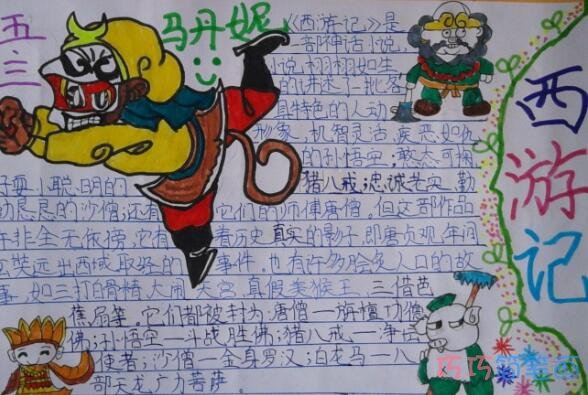 五.三
马丹妮
西游记
《西游记》是
一部神话小说,
小说栩栩如生
的讲述了一批各
具特色的人动
形象.机智灵活、疾恶如仇
的孙悟空;憨态可掬
耍小聪明的猪八戒;忠诚老实、勤
恳恳的沙僧;还有它们的师傅唐僧。但这部作品
非全无依据,它有着历史真实的影子,即唐贞观年间
玄奘远出西域取经的事件。也有许多脍炙人口的故
事,如三打白骨精、大闹天宫,真假美猴王、三借芭
蕉扇等。它们都被封为:唐僧一旃檀功德
佛;孙悟空一斗战胜佛;猪八戒一净坛
使者;沙僧一金身罗汉;白龙马一八
部天龙广力菩萨。